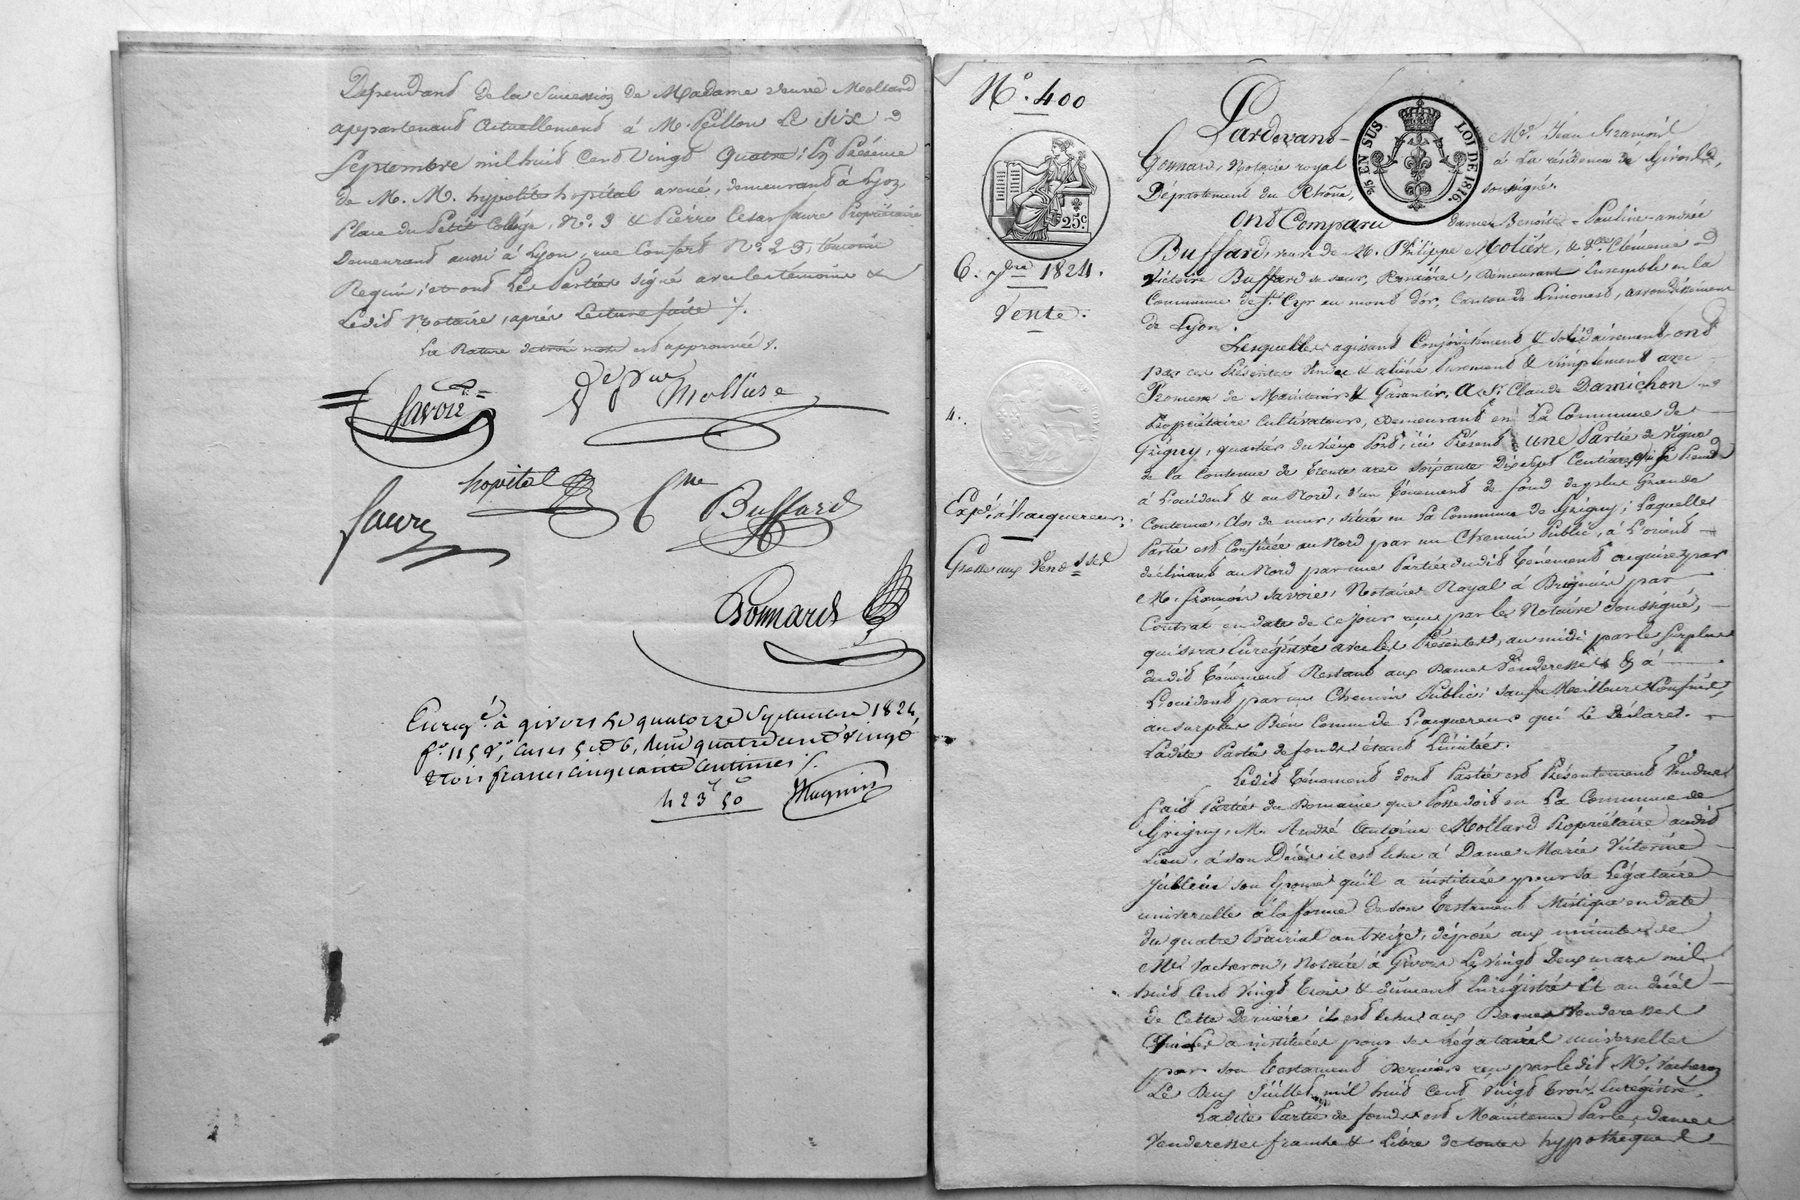 Dépendant de la Succession de Madame veuve Mollard
appartenant actuellement à M. Peillon Le Six
Septembre mil huit Cent Vingt Quatre; En Présence
de M. M. hypolite hopital avoué, demeurant à Lyon
Place du Petit Collége, N.° 3 & Pierre César faure Propriétaire
Demeurant aussi à Lyon, rue Confort N.° 23, témoins
Requis; et ont Les Parties signé avec les témoins &
Ledit Notaire, après Lecture faite ./.
La Rature de trois mots est approuvée ./.
Savoie
Mollière
hopital
faure
C.ne Buffard
Gonnard
Enreg.é à givors le quatorze Septembre 1824,
f.° 115 v.°, cases 5 et 6, reçu quatre cent vingt
trois francs cinquante centimes ./.
423 f 50 Magnin
N.° 400
25 EN SUS
LOI DE 1816.
25 c.
6. 7bre 1824.
Vente.
4.
Exp.é à l'acquéreur.
Grosse aux Venderesses
Pardevant M.e Jean
Gonnard, Notaire royal à La résidence de
Département du Rhône, soussigné.
Ont Comparu dames Benoite - Pauline - andrée
Buffard, veuve de M. Philippe Molière, & d.lle Clémence
Victoire Buffard sa sœur, Rentières, Demeurant Ensemble en la
Commune de S.t Cyr au mont d'or, Canton de Limonest, arrondissement
de Lyon.
Lesquelles agissant Conjointement & solidairement ont
par ces Présentes Vendu & aliéné Purement & simplement avec
Promesse de Maintenir & Garantir, A S.r Claude Damichon
Propriétaire Cultivateur, Demeurant en La Commune de
Grigny, quartier du vieux Pont, ici Présent une Partie de Vigne
de la Contenue de Trente ares Soixante Dix Sept Centiares, à Prendre
à L'occident & au Nord, d'un Ténement de fond de plus Grande
Contenue, Clos de murs, située en La Commune de Grigny; Laquelle
Partie est Confinée au Nord par un Chemin Public, à L'orient
déclinant au Nord par une Partie dudit Ténement acquise par
M. françois Savoie, Notaire Royal à Brignais par
Contrat en date de ce jour reçu par le Notaire Soussigné,
qui sera Enregistré avec les Présentes, au midi par le Surplus
dudit Ténement Restant aux Dames Venderesses & à
L'occident par un Chemin Public; sauf Meilleurs Confins,
au surplus Bien Connu de L'acquéreur qui Le Déclare.
Ladite Partie de fonds étant Limitée.
Ledit Ténement dont Partie est Présentement Vendue
fait Partie du Domaine que Possedoit en La Commune de
Grigny, M. André Antoine Mollard Propriétaire audit
Lieu, à son Décès il est échu à Dame Marie Victorine
Jublein son Epouse qu'il a instituée pour sa Légataire
universelle à la forme de son Testament Mistique en date
du quatre Prairial an treize, déposé aux minutes de
M.e Vacheron, Notaire à Givors Le vingt Deux mars mil
huit Cent Vingt Trois & dûment Enregistré Et au décès
de Cette Dernière il est échu aux Dames Venderesses
qu'elle a instituées pour ses Légataires universelles
par son Testament Dernier reçu par ledit M.e Vacheron
Le Deux Juillet mil huit Cent Vingt trois, Enregistré.
Ladite Partie de fonds est Maintenue Par les dames
Venderesses franche & Libre de toutes hypothèques